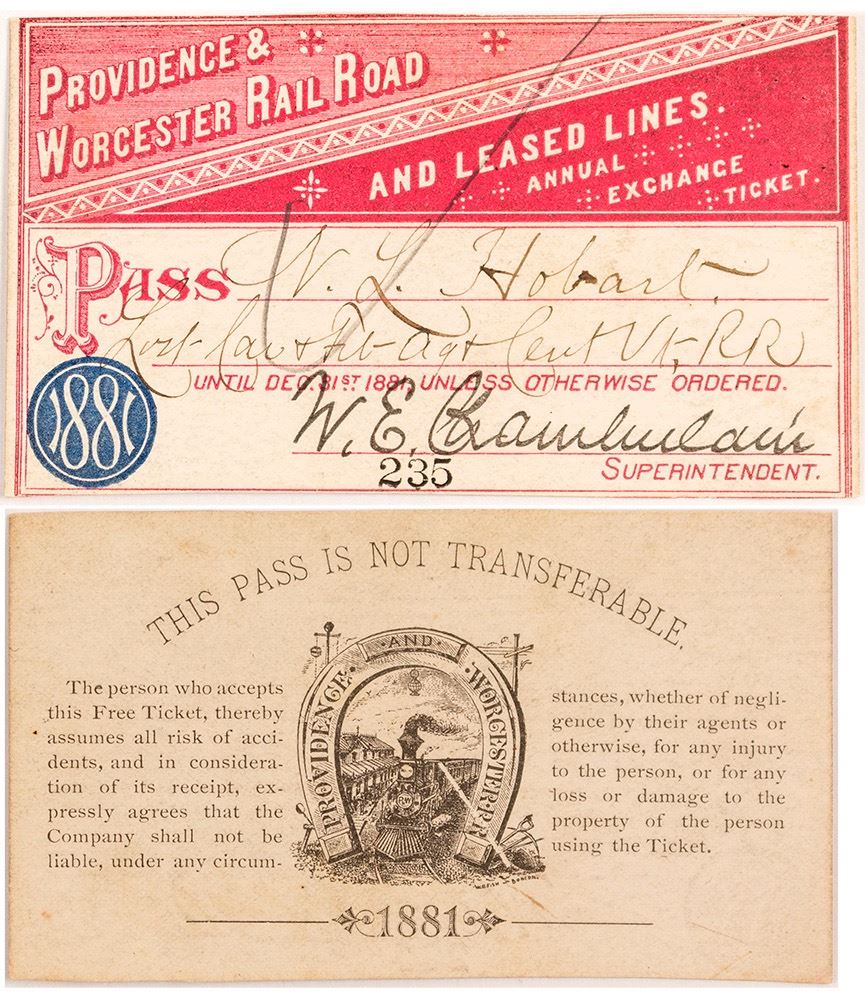 PROVIDENCE &
WORCESTER RAIL ROAD
AND LEASED LINES.
ANNUAL
EXCHANGE
TICKET.
PASS N. L. Hobart.
Agt Cent Vt. RR
UNTIL DEC. 31ST 1881, UNLESS OTHERWISE ORDERED.
1881
W. E. Chamberlain
235
SUPERINTENDENT.
THIS PASS IS NOT TRANSFERABLE.
The person who accepts
this Free Ticket, thereby
assumes all risk of acci-
dents, and in considera-
tion of its receipt, ex-
pressly agrees that the
Company shall not be
liable, under any circum-
PROVIDENCE AND WORCESTER R.R.
stances, whether of negli-
gence by their agents or
otherwise, for any injury
to the person, or for any
loss or damage to the
property of the person
using the Ticket.
1881